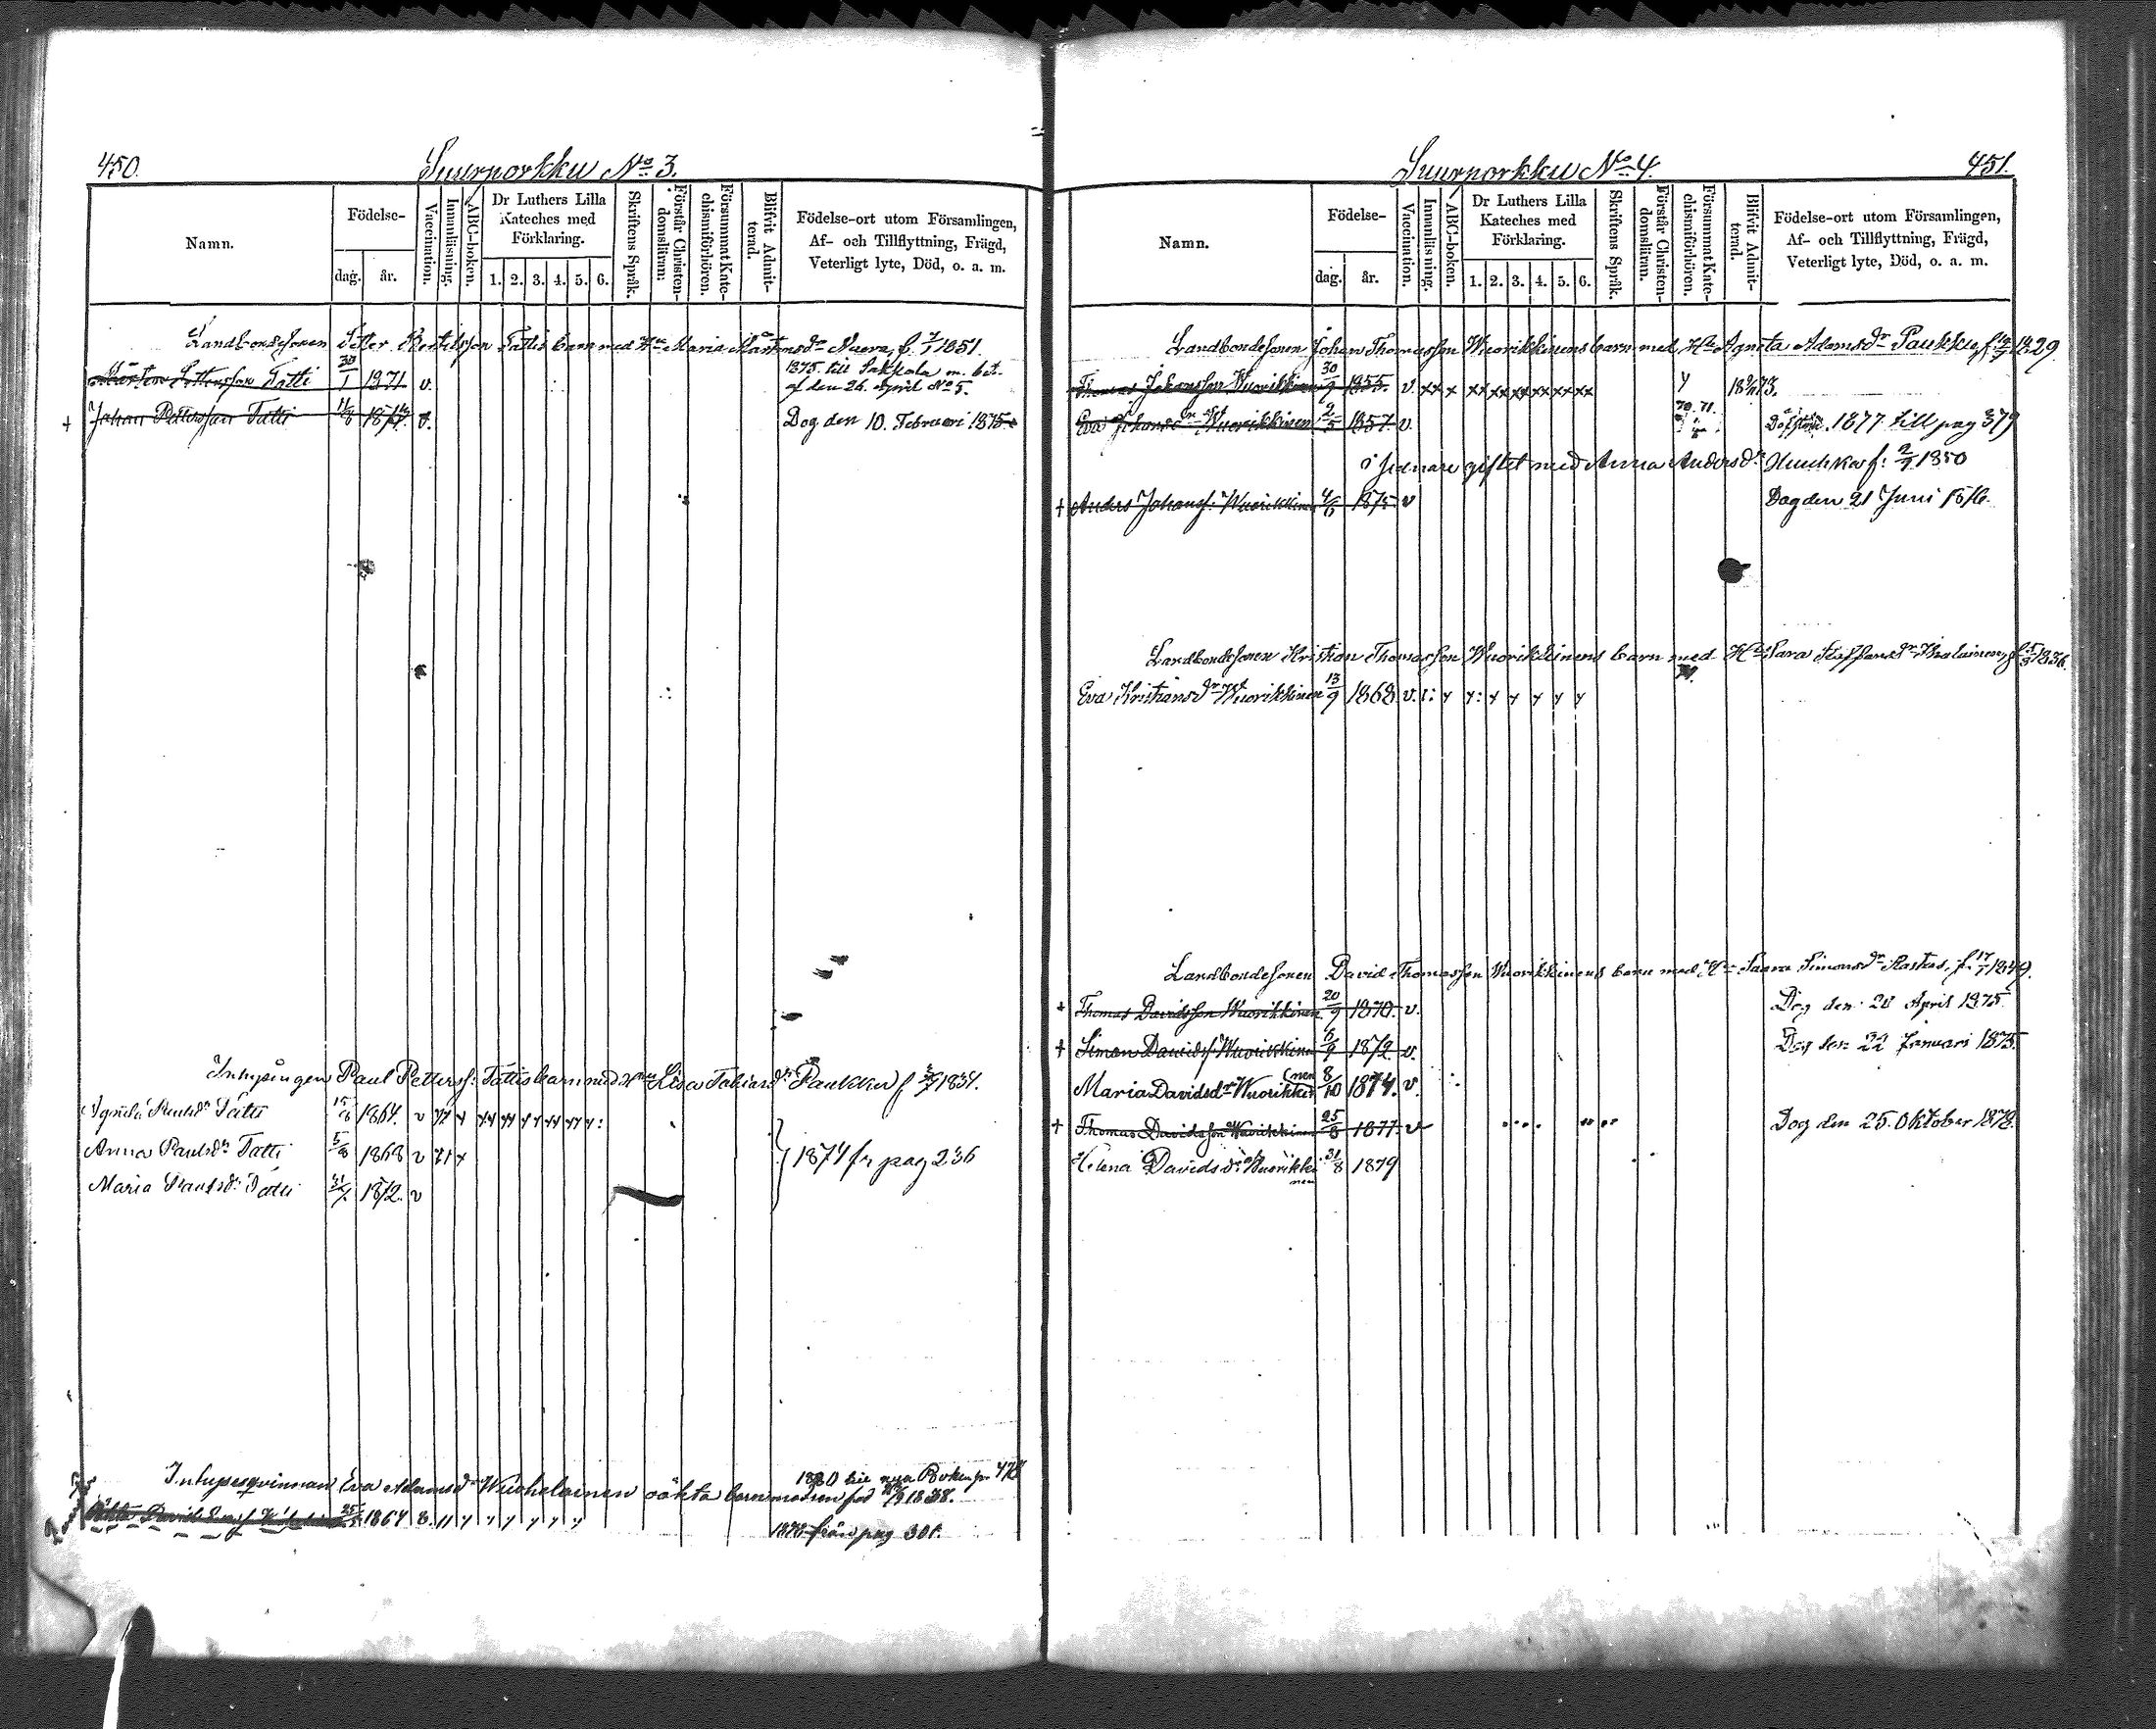 450.
Suurnorkku No 3.
Namn.
Födelse-
dag.
år.
Vaccination.
Innanläsning.
ABC-boken.
Dr Luthers Lilla
Kateches med
Förklaring.
1. 2. 3. 4. 5. 6.
Skriftens Språk.
Förstår Christen-
domsläran:
Försummat Kate-
chismiförhören.
Blifvit Admit-
terad.
Födelse-ort utom Församlingen,
Af- och Tillflyttning, Frägd,
Veterligt lyte, Död, o. a. m.
Landbondesonen Petter Bertilsson Tattis barn med Hu Maria Mårtensdr f. 7/1 1851.
1875 till Sakkola m. bet.
af den 26. April No 5.
Mårten Pettersson Tatti 30/1 1871 v.
+ Johan Pettersson Tatti 11/8 v. Dog den 10. Februari 1875
Inhysingen Paul Petterss: Tattis barn med Hu Lisa Tobiasdr Paukku f 1834.
Agneta Paulsdr Tatti 1864. v
Anna Paulsdr Tatti 5/8 1868 v
1874 fr pag 236
Maria Paulsdr Tatti 1872. v
1880 till nya Boken pag 478
Inhysesqvinnan Eva Adamsdr oäkta barn modren född 1838.
1864
från pag 301.
Suurnorkku No 4.
451.
Namn.
Födelse-
dag.
år.
Vaccination.
Innanläsning.
ABC-boken.
Dr Luthers Lilla
Kateches med
Förklaring.
1. 2. 3. 4. 5. 6.
Skriftens Språk.
Förstår Christen-
domsläran.
Försummat Kate-
chismiförhören.
Blifvit Admit-
terad.
Födelse-ort utom Församlingen,
Af- och Tillflyttning, Frägd,
Veterligt lyte, Död, o. a. m.
Landbondesonen Johan Thomasson Wuorikkinens barn med Hu Agneta Adamsdr Paukku, f. 1829
Thomas Johansson Wuorikkinen 30/9 1855. v. xx x x xx xx xx xx xx
70. 71.
Eva Johansdr Wuorikkinen 2/5 1857. v. 1877 till pag 379
i senare giftet med Anna Andersdr f: 2/7 1850
+ Anders Johanss: Wuorikkinen 1875 v Dog den 21 Juni 1876.
Landbondesonen Kristian Thomasson Wuorikkinens barn med Hu Sara Staffansdr 1836.
Eva Kristiansdr Wuorikkinen 13/9 1868 v.
Landbondesonen David Thomasson Wuorikkinens barn med Hu Saara Simonsdr Rastas, f. 17/7 1849.
+ Thomas Davidsson Wuorikkinen 20/9 1870. v. Dog den 20 April 1875.
+ Simon Davidss Wuorikkinen 1872. v. Dog den 22 Januari 1875.
Maria Davidsdr Wuorikkinen 8/10 1874. v.
+ Thomas Davidsson Wuorikkinen 25/8 1877. v Dog den 25. Oktober 1878.
Helena Davidsdr Wuorikki
nen 31/8 1879